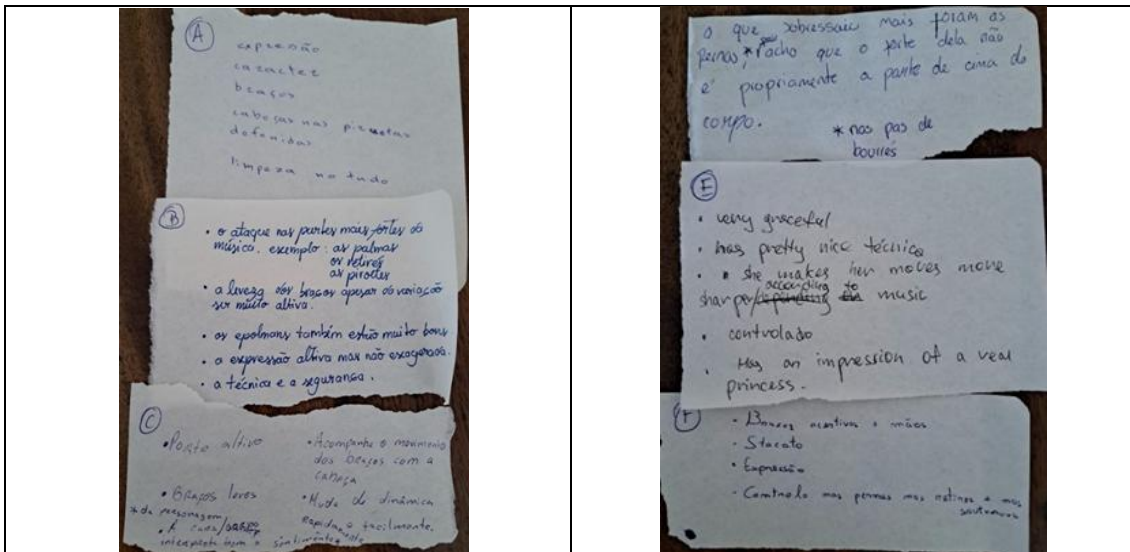 A
expressão
caracter
braços
cabeças nas piruetas
defenidas
limpeza no tudo
B
• o ataque nas partes mais fortes da
música. exemplo: as palmas
os retirés
as piroetes
• a leveza dos braços apesar da variação
ser muito altiva.
• os epolmans também estão muito bons
• a expressão altiva mas não exagerada.
• a técnica e a segurança.
C
• Porte altivo
• Braços leves
* da personagem
• A cara/
interpreta bem o sentimento*
• Acompanha o movimento
dos braços com a
cabeça
• Muda de dinâmica
rapidamente e facilmente.
o que sobressaiu mais foram as
pernas,* acho que o forte dela não
é propriamente a parte de cima do
corpo.
* nos pas de
bourrés
E
• very graceful
• has pretty nice técnica
• she makes her moves more
sharper/depending according to music
• controlado
• Has an impression of a real
princess.
F
• Braços e mãos
• Stacato
• Expressão
- Controlo nas pernas nos retires e nos